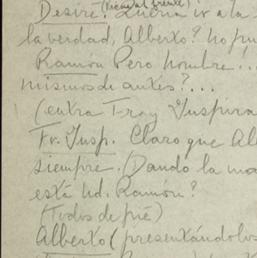 Desiré. (Vieja al frente) Quería ir a la
la verdad, Alberto? No pu
Ramón Pero hombre!..
mismos de antes?...
(entra Fray Inspira
Fr. Insp. Claro que Al
siempre. (Dando la ma
está Ud. Ramón?
(Todos de pié)
Alberto (presentándolos